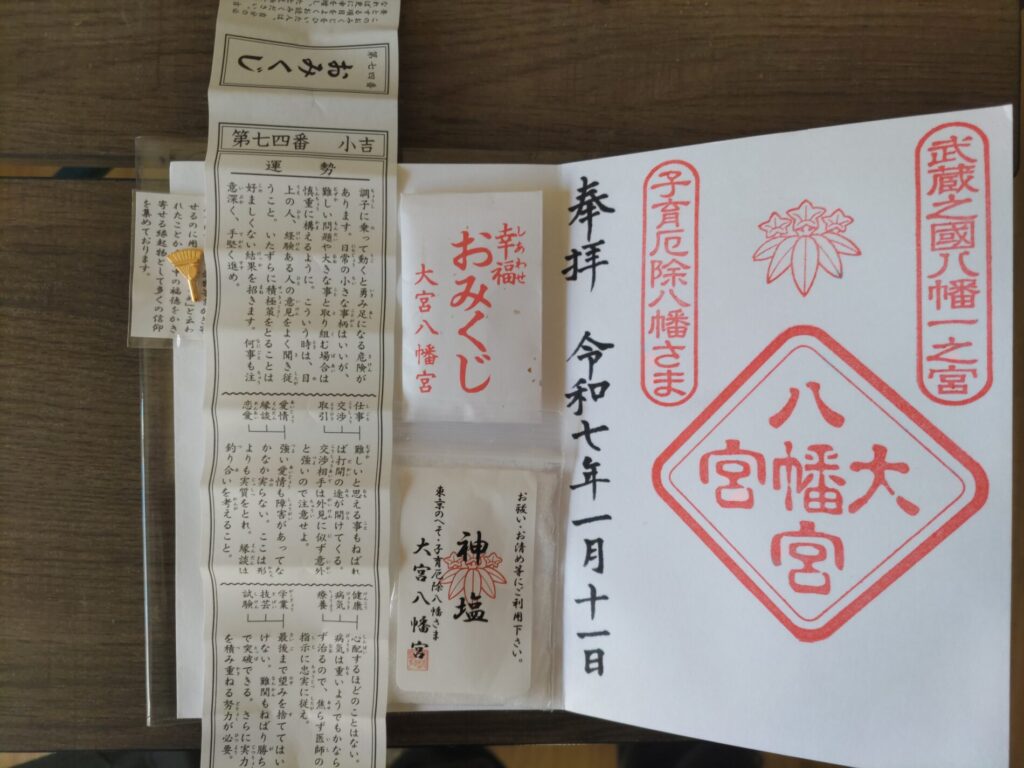 第七四番
おみくじ
第七四番 小吉
運勢
調子に乗って動くと勇み足になる危険が
あります。日常の小さな事柄はいいが、
難しい問題や大きな事と取り組む場合は
慎重に構えるように。こういう時は、目
上の人、経験ある人の意見をよく聞き従
うこと、いたずらに積極策をとることは
好ましくない結果を招きます。何事も注
意深く、手堅く進め。
仕事
交渉
取引
難しいと思える事もねばれ
ば打開の途が開けてくる。
交渉相手は外見に似ず意外
と強いので注意せよ。
愛情
縁談
恋愛
強い愛情も障害があってな
かなか実らない。ここは形
よりも実質をとれ。縁談は
釣り合いを考えること。
健康
病気
療養
心配するほどのことはない。
病気は重いようでもかなら
ず治るので、焦らず医師の
指示に忠実に従え。
学業
技芸
試験
最後まで望みを捨ててはい
けない。難関もねばり勝ち
で突破できる。さらに実力
を積み重ねる努力が必要。
寄せる縁起物として多くの信仰
を集めております。
しあわせ
幸福
おみくじ
大宮八幡宮
お祓い・お清め等にご利用下さい。
神塩
東京のへそ・子育厄除八幡さま
大宮八幡宮
武蔵之國八幡一之宮
大宮八幡宮
子育厄除八幡さま
奉拝 令和七年一月十一日